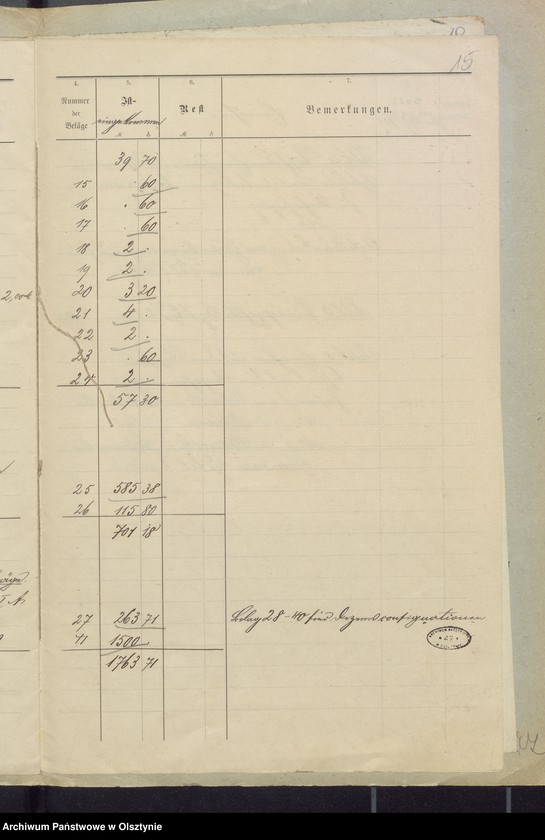 15
4. 5. 6. 7.
Nummer der Beläge
Ist- eingekommen
Rest
Bemerkungen.
39 70
15 . 60
16 . 60
17 . 60
18 2 .
19 2 .
2,
20 3 20
21 4 .
22 2 .
23 . 60
24 2 .
57 30
25 585 38
26 115 80
701 18
27 263 71 Belag 28-40 sind Dezemconsignationen
41 1500
1763 71
Archiwum Państwowe w Olsztynie